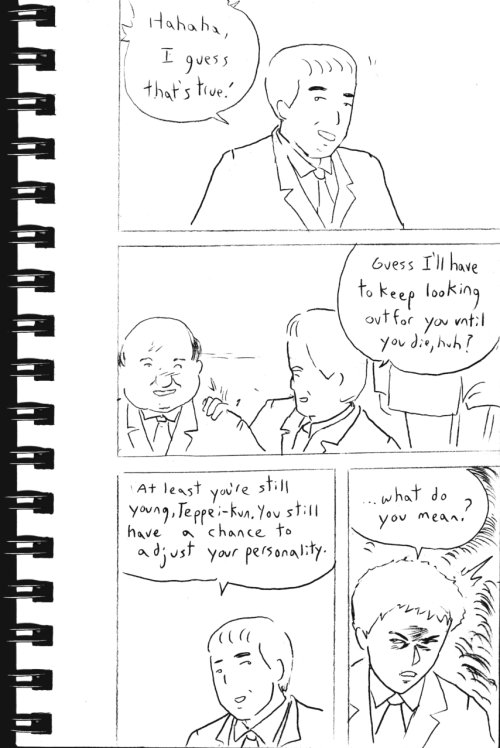 Hahaha,
I guess
that's true!
Guess I'll have
to keep looking
out for you until
you die, huh?
At least you're still
young, Teppei-kun. You still
have a chance to
adjust your personality.
...what do
you mean?